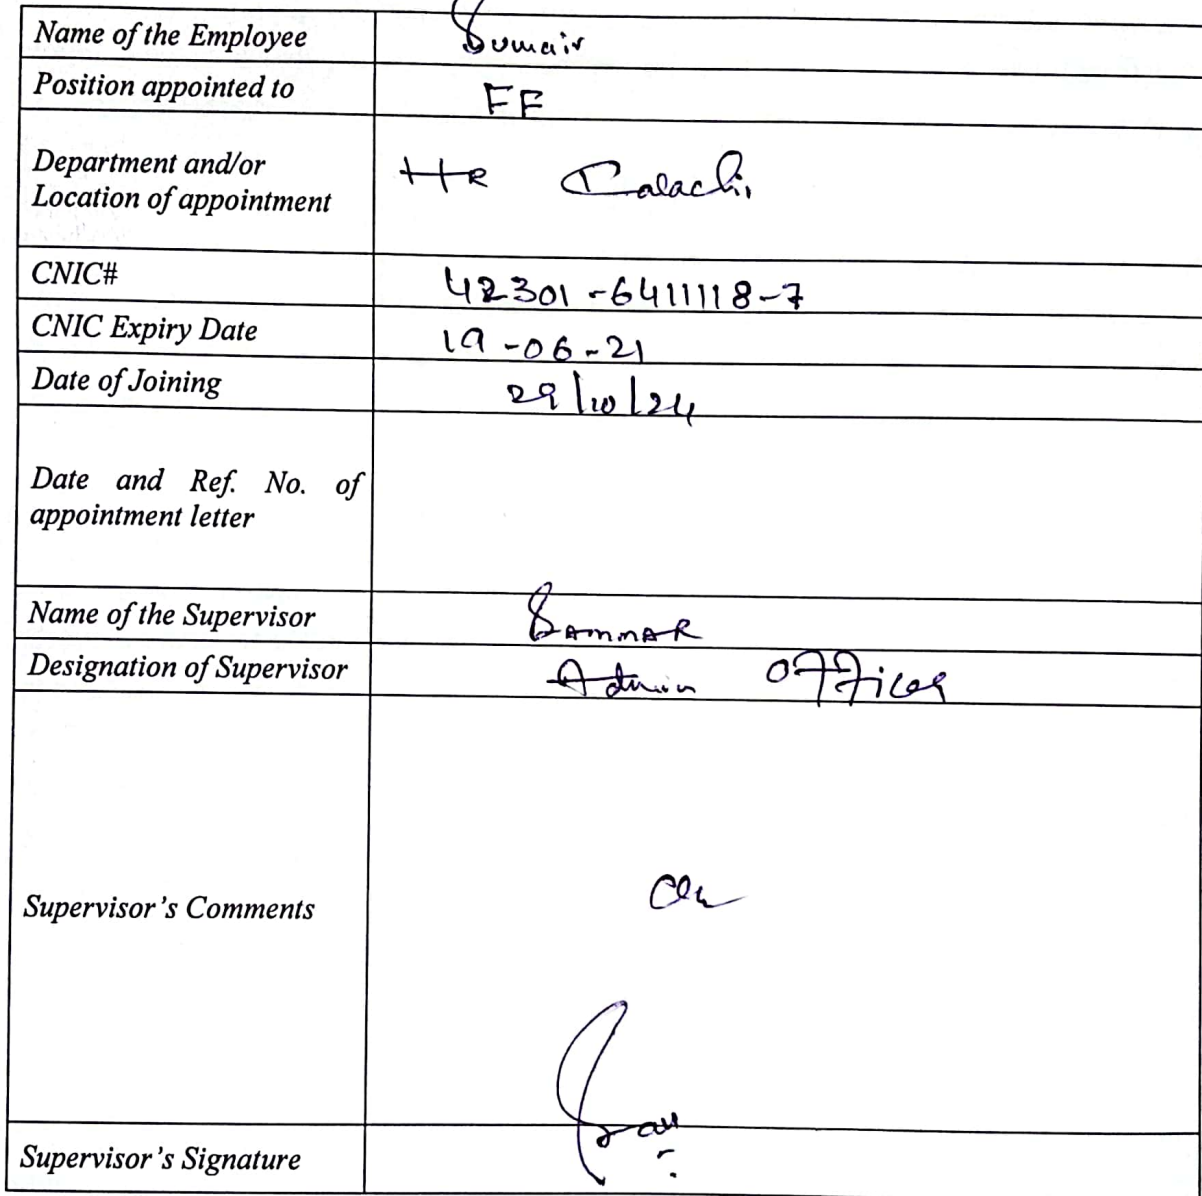 Name of the Employee Sumair
Position appointed to FF
Department and/or
Location of appointment HR Calachi
CNIC# 42301-6411118-7
CNIC Expiry Date 19-06-21
Date of Joining 29/10/24
Date and Ref. No. of
appointment letter
Name of the Supervisor SAMMAR
Designation of Supervisor Admin Officer
Supervisor's Comments
Supervisor's Signature